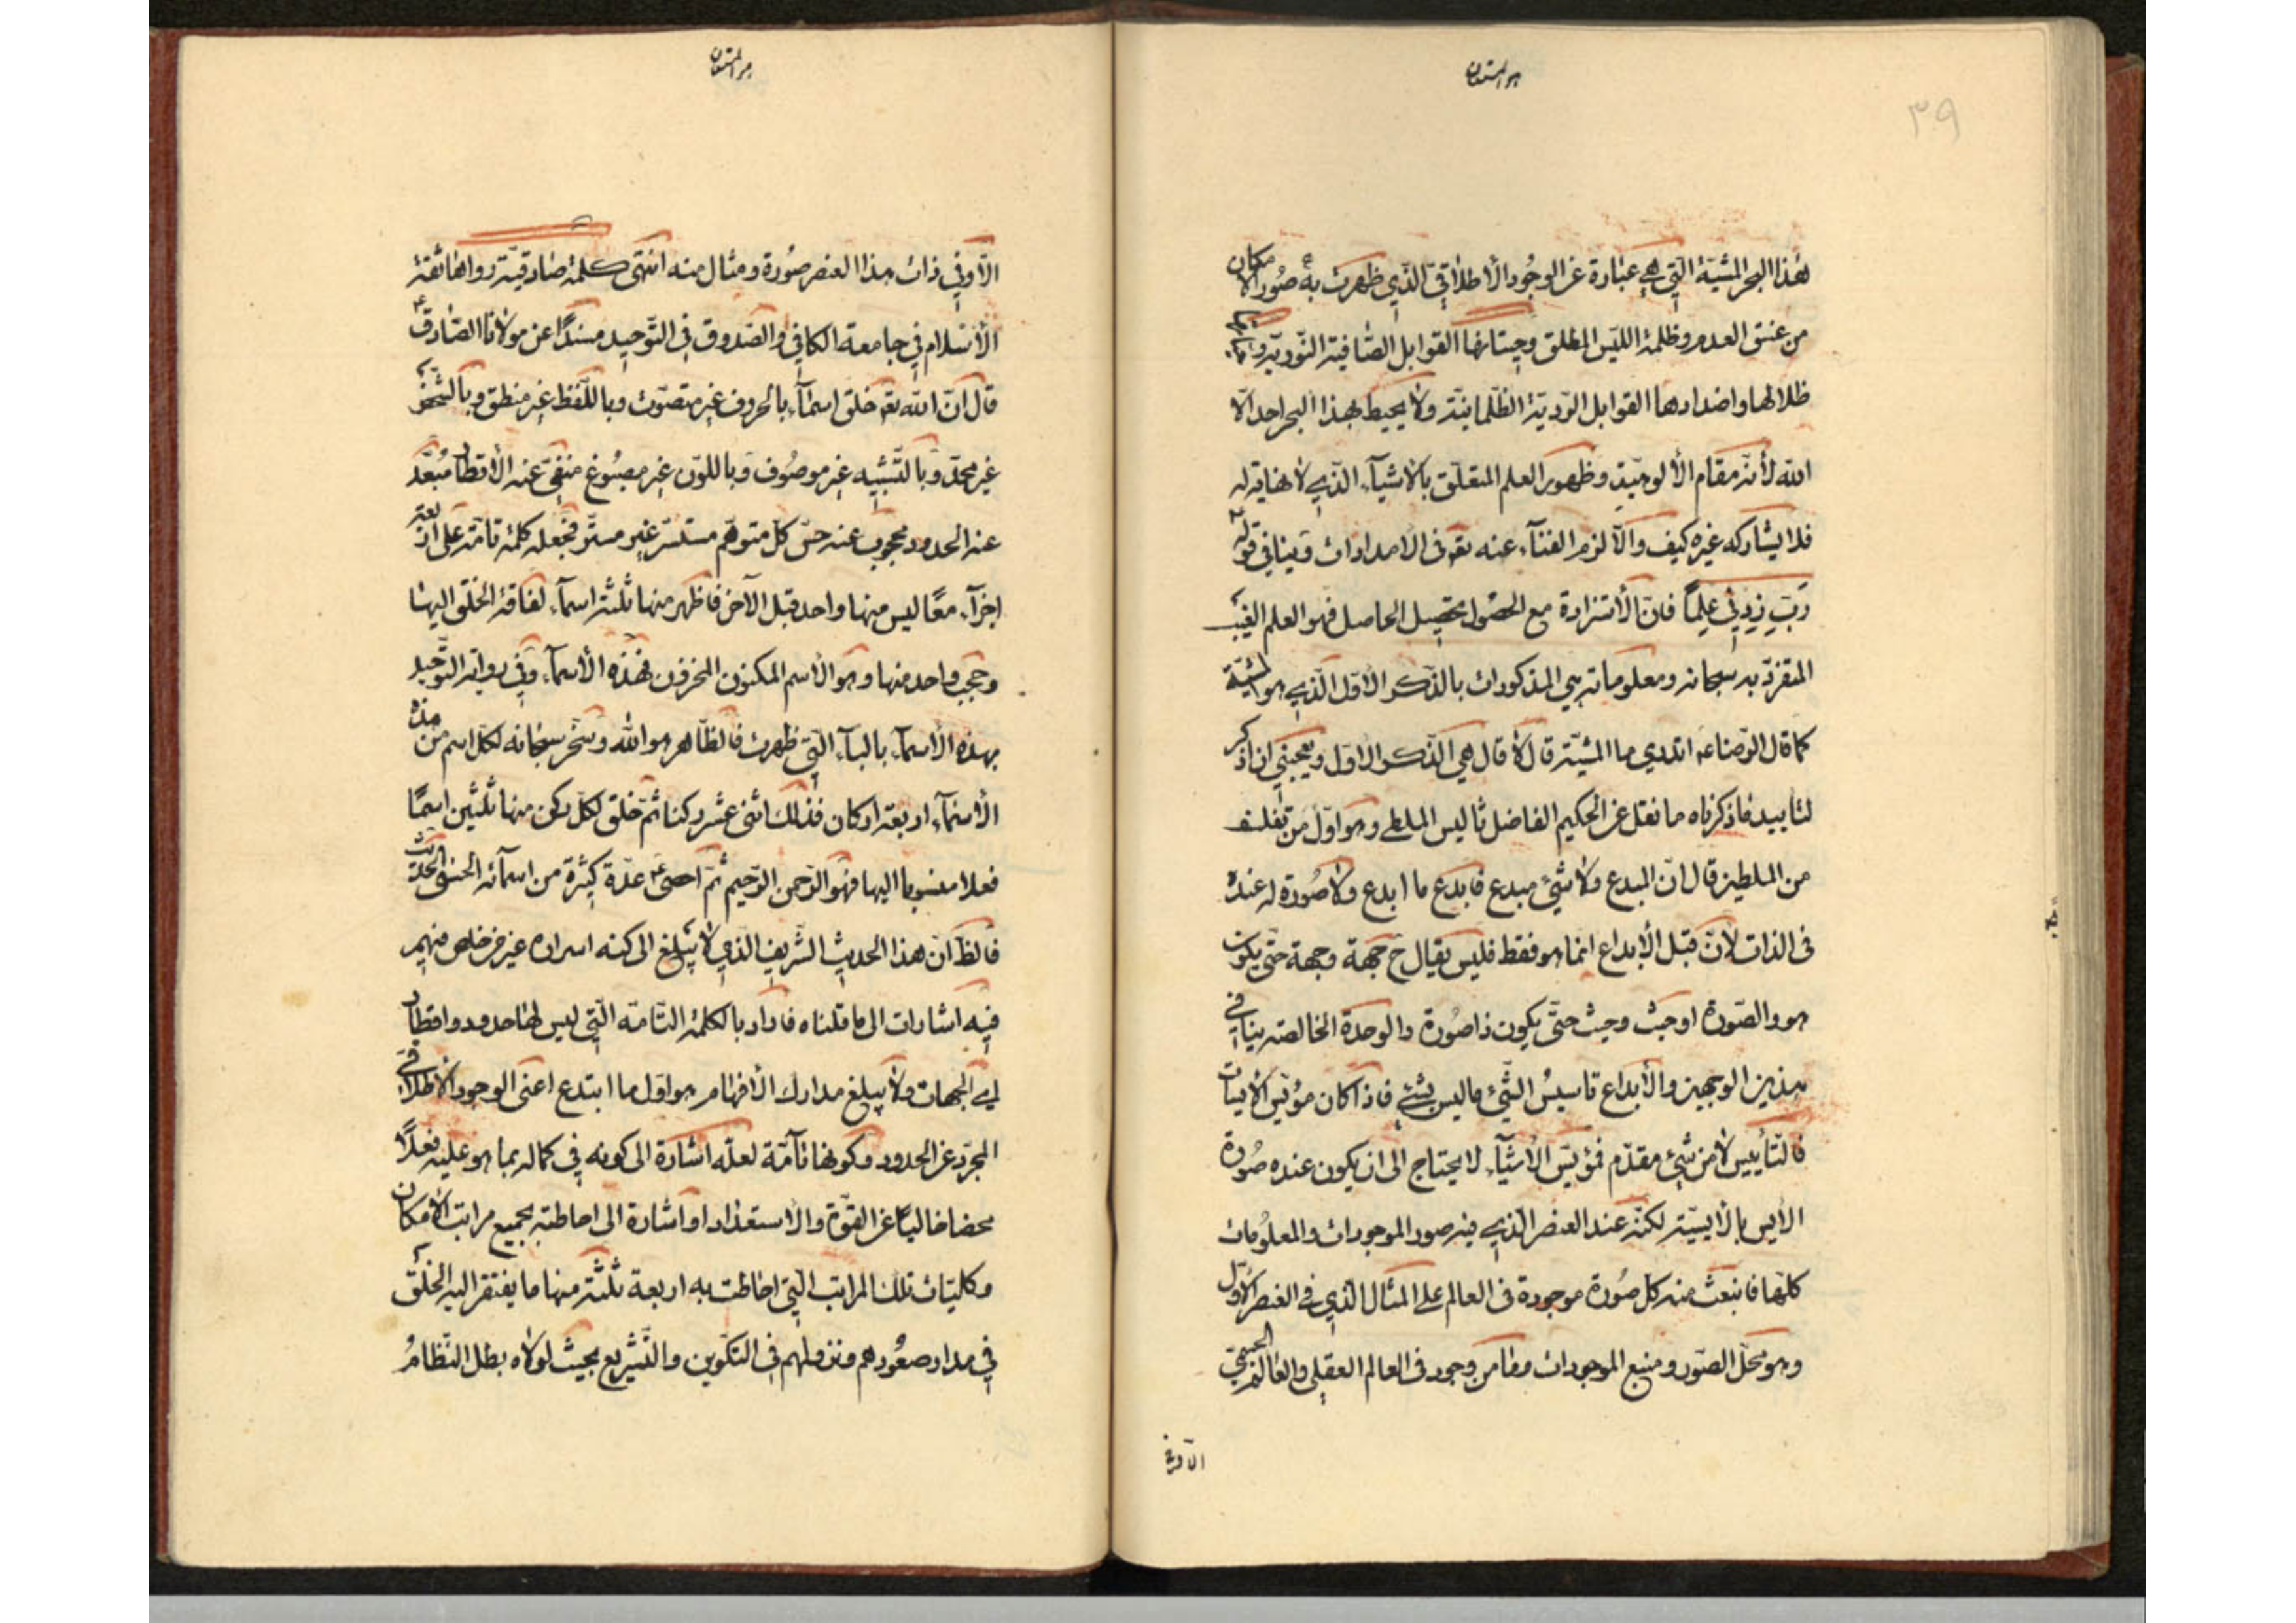 هو المستعان
٣٩
لهذا البحر المشية التي هي عبارة عن الوجود الأطلاقي الذي ظهرت به صور الامكان
من غسق العدم وظلمة الليس المطلق وحيتانها القوابل الصافية النورية و
ظلالها واضدادها القوابل الردية الظلمانية ولا يحيط بهذا البحر احد الا
الله لأنه مقام الألوهية وظهور العلم المتعلق بالاشياء الذي لا نهاية له
فلا يشاركه غيره كيف والا لزم الفناء عنه تع‍ فى الامدادات وينافي قوله
رب زدني علما فان الأستزادة مع الحصول تحصيل الحاصل فهو العلم الغيب
المتفرد به سبحانه ومعلوماته هي المذكورات بالذكر الأول الذي هو المشية
كما قال الرضا ع‍ اتدري ما المشية قال لا قال هي الذكر الاول ويعجبني ان اذكر
لتأييد ما ذكرناه ما نقل عن الحكيم الفاضل ثاليس الملطي وهو اول من تفلسف
من الملطين قال ان المبدع ولا شئ مبدع فابدع ما ابدع ولا صورة له عنده
فى الذات لان قبل الأبداع انما هو فقط فليس يقال ح جهة وجهة حتى يكون
هو والصورة او حيث وحيث حتى يكون ذا صورة والوحدة الخالصة ينافي
هذين الوجهين والأبداع تأسيس الشئ ما ليس بشئ فاذا كان مؤيس الأيسات
فالتأييس لا من شئ مقدم فمؤيس الأشياء لا يحتاج الى ان يكون عنده صورة
الأيس بالأيسية لكنه عند العنصر الذي فيه صور الموجودات والمعلومات
كلها فانبعث منه كل صورة موجودة فى العالم على المثال الذي فى العنصر الأول
وهو محل الصور ومنبع الموجودات وما من وجود فى العالم العقلي والعالم الحسي
الا وفي
هو المستعان
الا وفي ذات هذا العنصر صورة ومثال منه انتهى كلمة صادقية رواها ثقة
الأسلام في جامعه الكافي والصدوق فى التوحيد مسندا عن مولانا الصادق ع
قال ان الله تع‍ خلق اسماء بالحروف غير متصوت وباللفظ غير منطق وبالشخص
غير مجسد وبالتشبيه غير موصوف وباللون غير مصبوغ منفي عنه الأقطار مبعد
عنه الحدود محجوب عنه حس كل متوهم مستتر غير مستر فجعله كلمة تامة على اربعة
اجزاء معا ليس منها واحد قبل الآخر فاظهر منها ثلثة اسماء لفاقة الخلق اليها
وحجب واحد منها وهو الأسم المكنون المخزون فهذه الأسماء وفي رواية التوحيد
بهذه الأسماء بالباء التي ظهرت فالظاهر هو الله وسخر سبحانه لكل اسم من هذه
الأسماء اربعة اركان فذلك اثنى عشر ركنا ثم خلق لكل ركن منها ثلثين اسما
فعلا منسوبا اليها فهو الرحمن الرحيم ثم احصى ع‍ عدة كثيرة من اسمائه الحسنى الحديث
فالظ ان هذا الحديث الشريف الذي لا يبلغ الى كنه اسراره غير من خلص منهم
فيه اشارات الى ما قلناه فاراد بالكلمة التامة التي ليس لها حدود واقطار
اي الجهات ولا يبلغ مدارك الأفهام هو اول ما ابتدع اعنى الوجود الأطلاقي
المجرد عن الحدود وكونها تآمة لعله اشارة الى كونه في كماله بما هو عليه فعلا
محضا خاليا عن القوة والاستعداد او اشارة الى احاطته بجميع مراتب الأمكان
وكليات تلك المراتب التي احاطت به اربعة ثلثة منها ما يفتقر اليه الخلق
في مدار صعودهم ونزولهم فى التكوين والتشريع بحيث لولاه بطل النظام